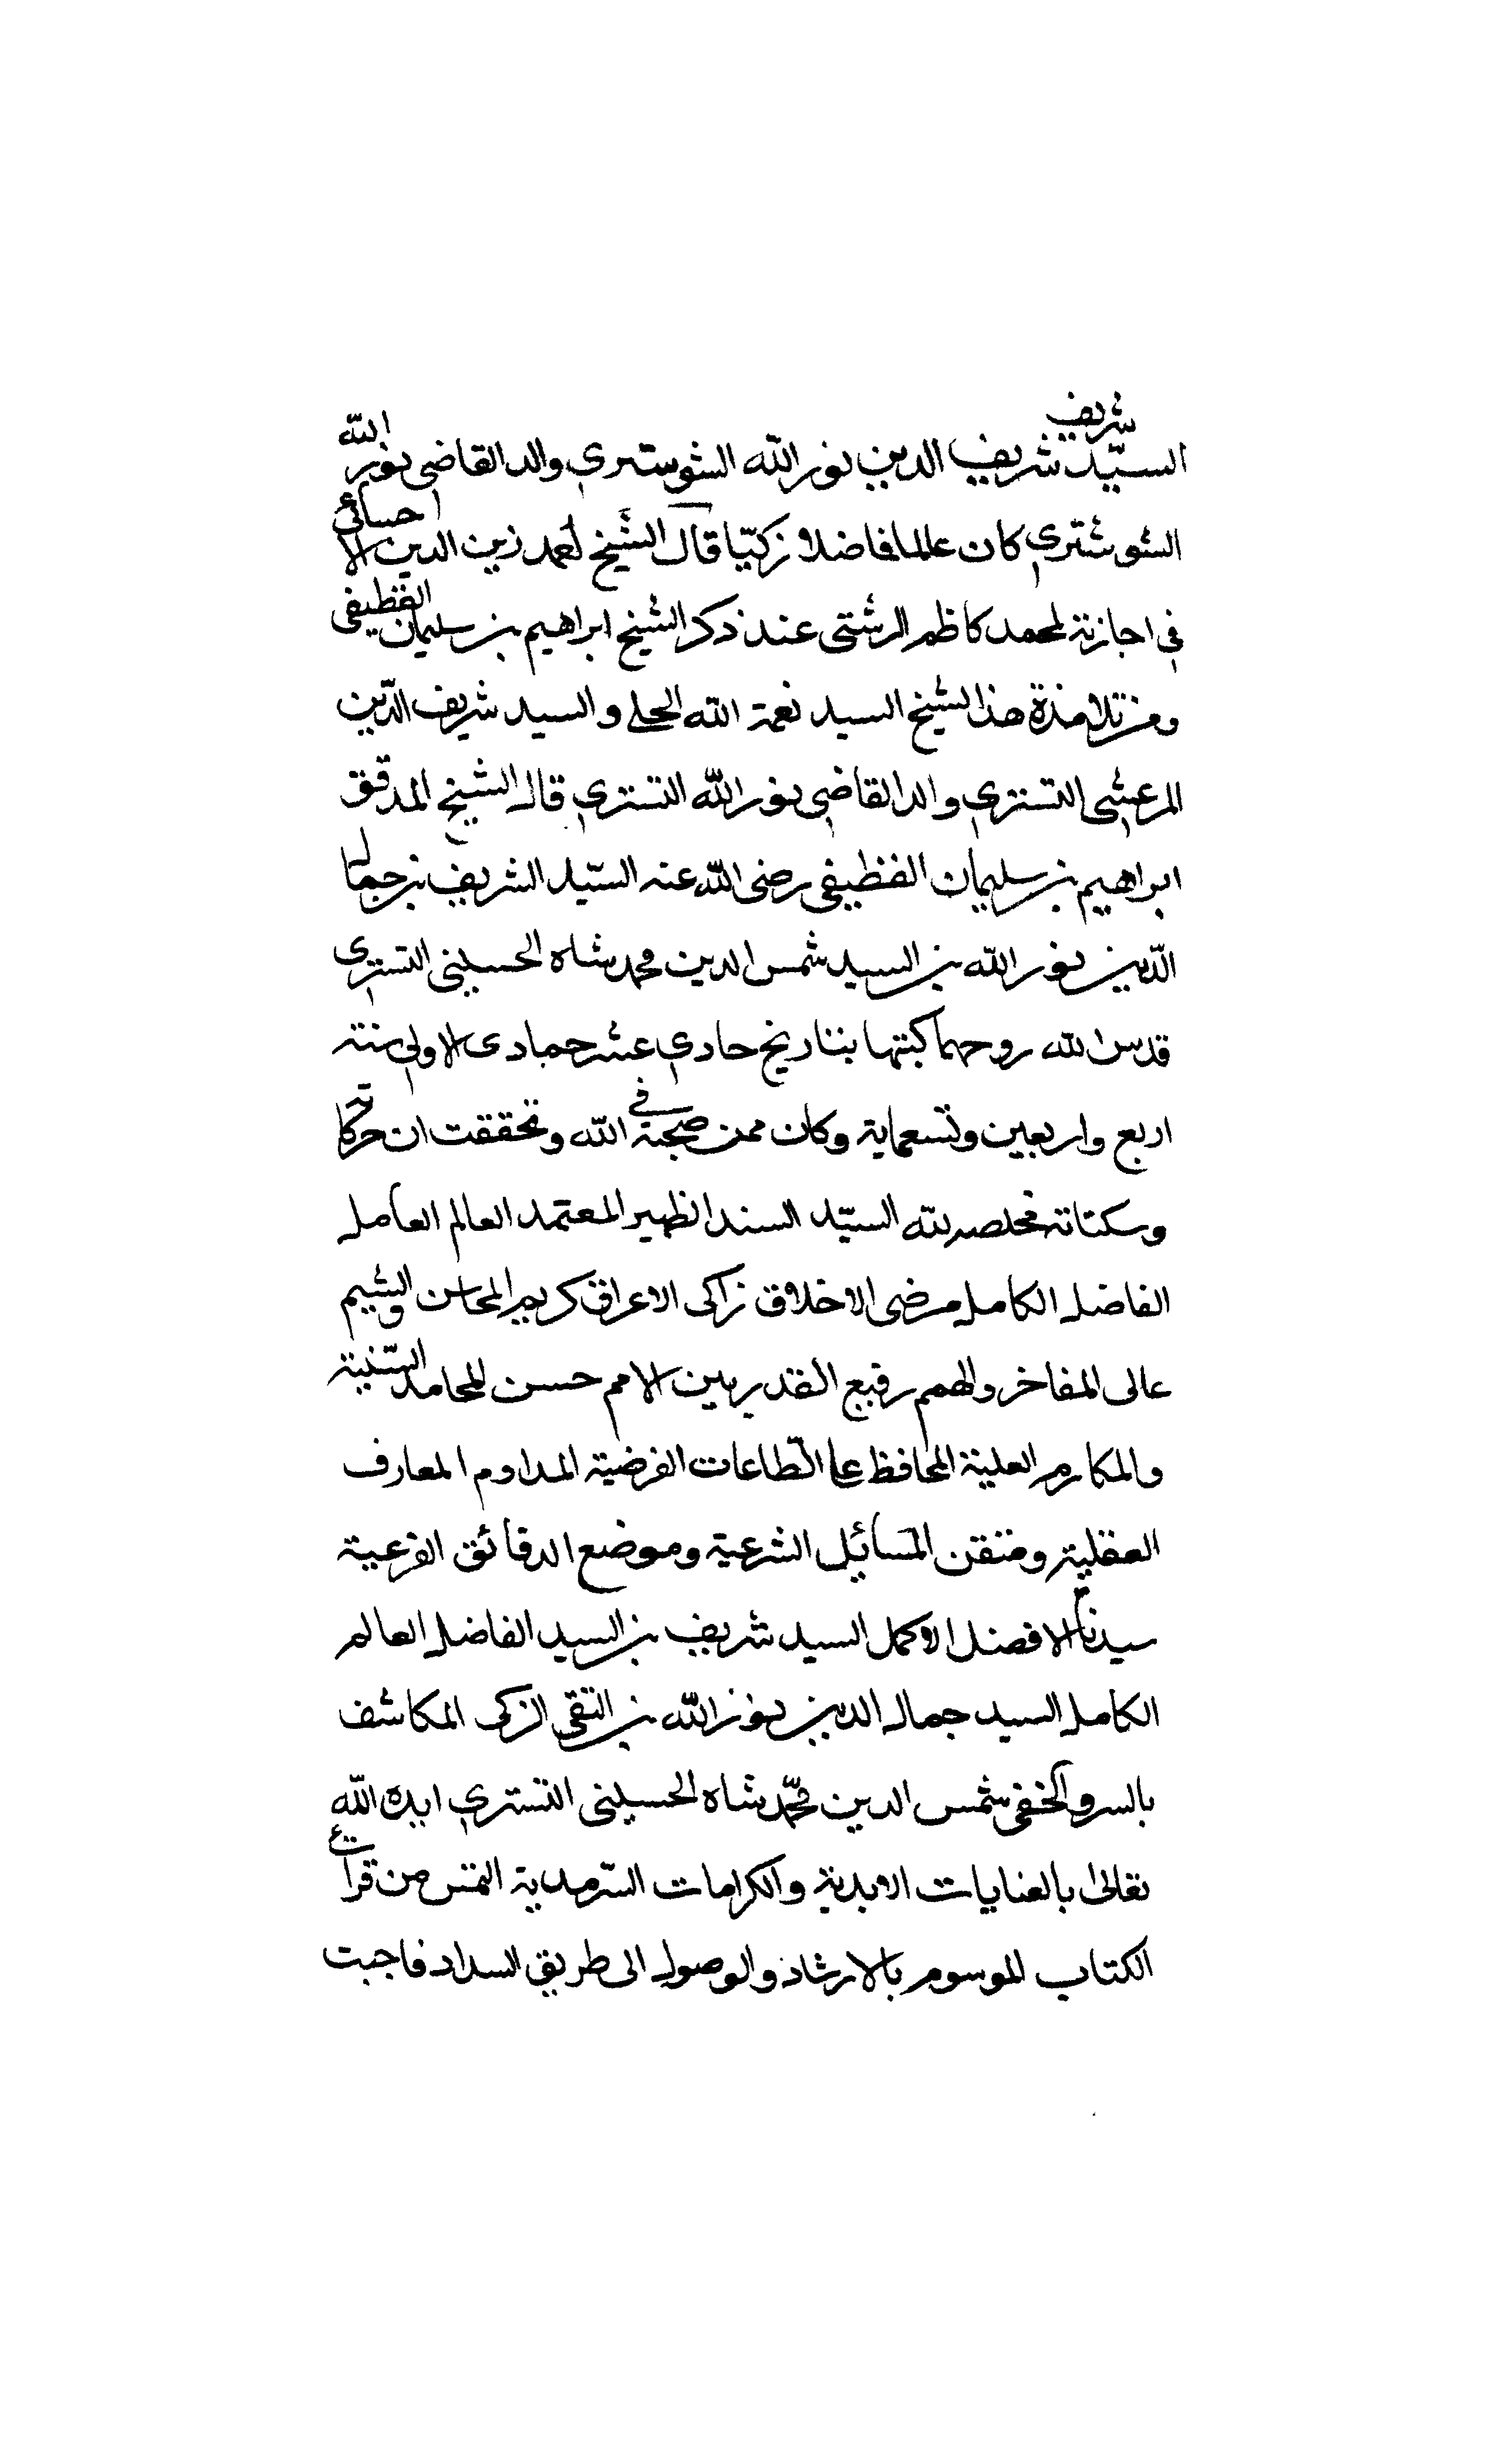 شريف
السيّد شريف الدين نور الله الشوشتري والد القاضي نور الله
الشوشتري كان عالما فاضلا زكيّا قال الشيخ احمد زين الدين الاحسائي
في اجازته لمحمد كاظم الرشتى عند ذكر الشيخ ابراهيم بن سليمان القطيفى
ومن تلامذة هذا الشيخ السيد نعمة الله الحلي والسيد شريف الدّين
المرعشي التستري والد القاضي نور الله التستري قال الشيخ المدقق
ابراهيم بن سليمان القطيفى رضى الله عنه السيّد الشريف بن جمال
الدّين نور الله بن السيد شمس الدين محمد شاه الحسينى التستري
قدس الله روحهما كتبتها بتاريخ حادي عشر جمادى الاولى سنة
اربع واربعين وتسعماية وكان ممن صحبته في الله وتحققت ان حركاته
وسكناته مخلصه لله السيّد السند الظهير المعتمد العالم العامل
الفاضل الكامل مرضى الاخلاق زاكى الاعراق كريم المحاسن والشيم
عالى المفاخر والهمم رفيع القدر بين الامم حسن المحامد السّنية
والمكارم العلية المحافظ على الطّاعات الفرضية المداوم المعارف
العقلية ومتقن المسائل الشرعية وموضع الدقائق الفرعية
سيدنا الافضل الاكمل السيد شريف بن السيد الفاضل العالم
الكامل السيد جمال الدين نور الله بن التقى الزكى المكاشف
بالسر والخفى شمس الدين محمّد شاه الحسينى التستري ايده الله
تعالى بالعنايات الابدية والكرامات السّرمدية التمس من قراءة
الكتاب الموسوم بالارشاد والوصول الى طريق السداد فاجبت